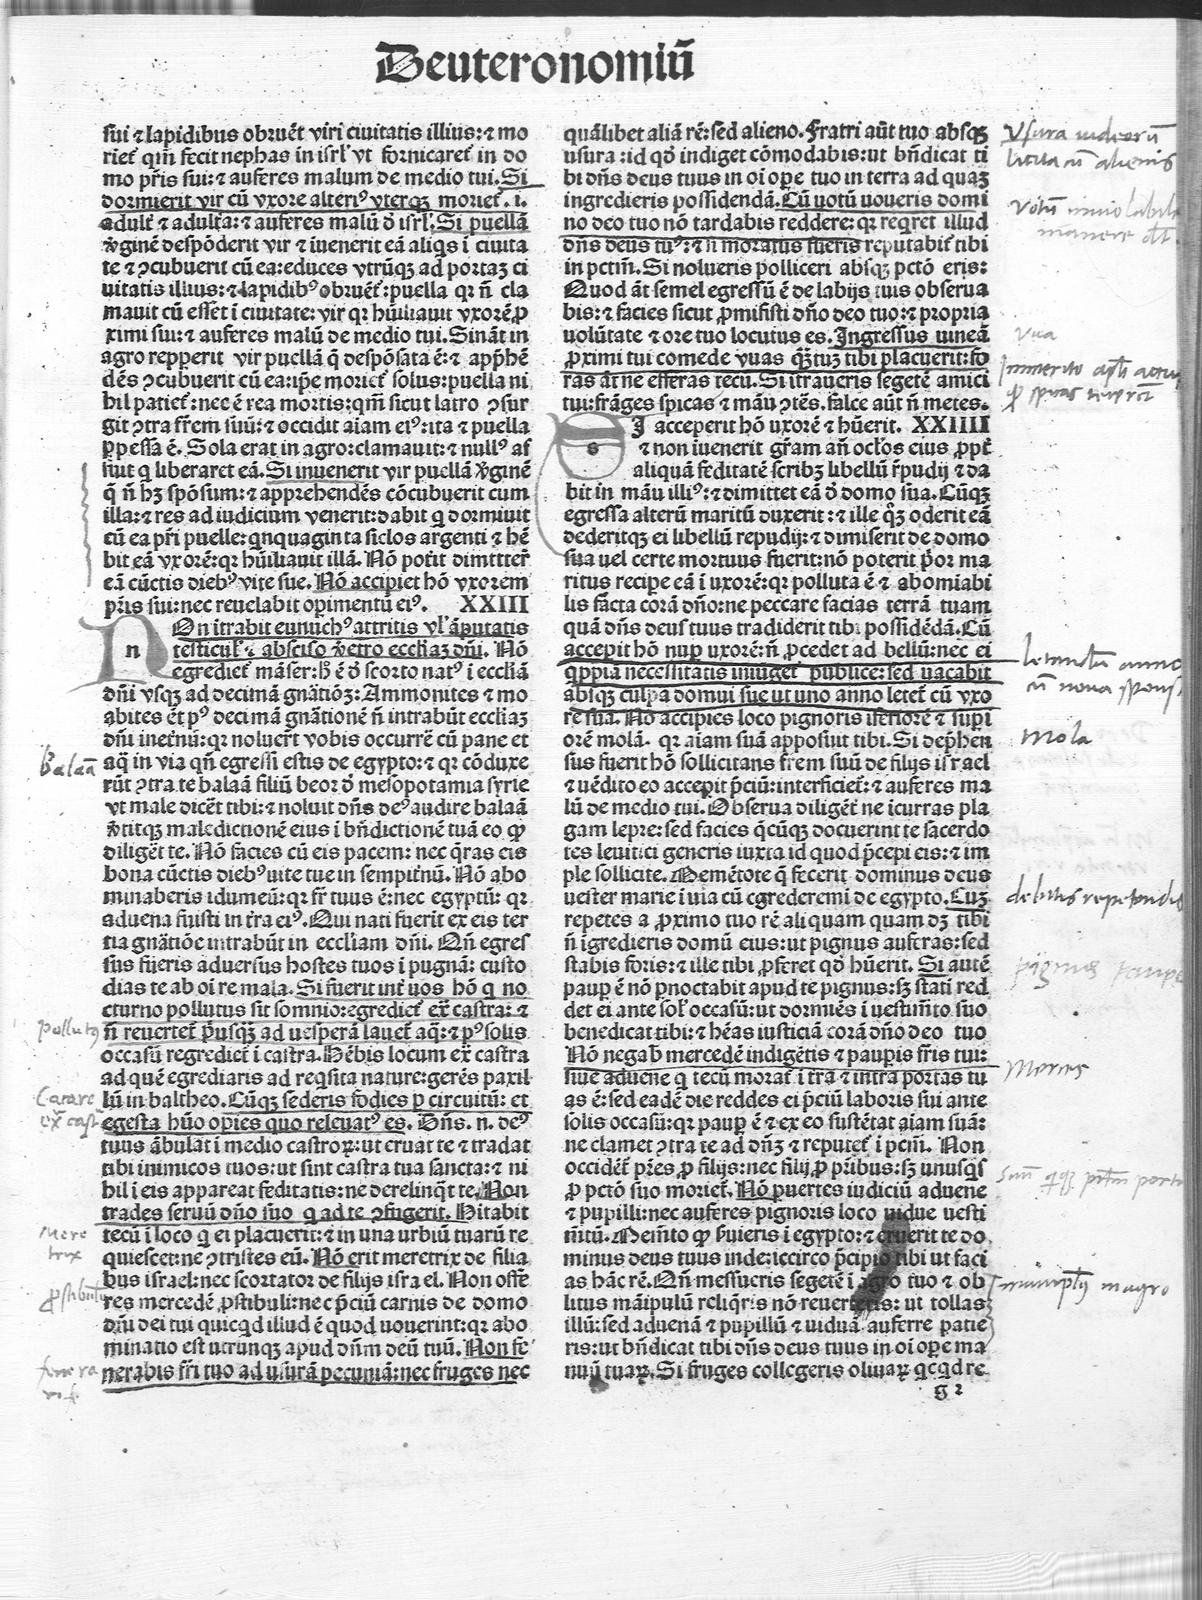 Deuteronomiū
sui ⁊ lapidibus obruēt viri ciuitatis illius: ⁊ mo
riet̃ qm̄ fecit nephas in isrl̓ vt fornicaret̃ in do
mo pr̄is sui: ⁊ auferes malum de medio tui. Si
dormierit vir cū vxore alteriꝰ vterqꝫ moriet̃ .i.
adult̃ ⁊ adultãa: ⁊ auferes malū ð isrl̓. Si puellā
v̓ginē despōderit vir ⁊ iuenerit eā aliqs ī ciuita
te ⁊ ↄcubuerit cū ea: educes vtrūqꝫ ad portaꝫ ci
uitatis illius: ⁊ lapidibꝰ obruēt̃: puella qꝛ n̄ cla
mauit cū esset ī ciuitate: vir qꝛ hūiliauit vxorē ꝓ
ximi sui: ⁊ auferes malū de medio tui. Sināt in
agro repperit vir puellā q̄ despōsata ē: ⁊ app̄hē
dēs ↄcubuerit cū ea: ip̄e moriet̃ solus: puella ni
hil patiet̃: nec ē rea mortis: qm̄ sicut latro ↄsur
git ↄtra fr̄em suū: ⁊ occidit aiam eiꝰ: ita ⁊ puella
ꝑpessa ē. Sola erat in agro: clamauit: ⁊ nullꝰ af
fuit q liberaret eā. Si inuenerit vir puellā v̓ginē
q̄ n̄ hꝫ spōsum: ⁊ apprehendēs cōcubuerit cum
illa: ⁊ res ad iudicium venerit: dabit q dormiuit
cū ea pr̄i puelle: qnquaginta siclos argenti ⁊ hē
bit eā vxorē: qꝛ hūiliauit illā. Nō potit dimitter̄
eā cūctis diebꝰ vite sue. Nō accipiet hō vxorem
pr̄is sui: nec reuelabit opimentū eiꝰ. XXIII
n
On ītrabit eunuchꝰ attritis vl̓ āputatis
testicul̓ ⁊ absciso v̓etro eccliaꝫ dn̄i. Nō
egrediet̃ māser: h̓ ē ð scorto natꝰ ī eccliā
dn̄i vsqꝫ ad decimā gnātiōꝫ: Ammonites ⁊ mo
abites et̄ pꝰ decimā gnātionē n̄ intrabūt eccliaꝫ
dn̄i inet̄nū: qꝛ noluer̄t vobis occurrē cū pane et
aq̄ in via qn̄ egressi estis de egypto: ⁊ qꝛ cōduxe
rūt ↄtra te balaā filiū beor ð mesopotamia syrie
vt male dicēt tibi: ⁊ noluit dn̄s deꝰ audire balaā
v̓titqꝫ maledictionē eius ī bn̄dictionē tuā eo ꝙ
diliget te. Nō facies cū eis pacem: nec q̄ras eis
bona cūctis diebꝰ vite tue in sempit̄nū. Nō abo
minaberis idumeū: qꝛ fr̄ tuus ē: nec egyptū: qꝛ
aduena fuisti in t̄ra eiꝰ. Qui nati fuerīt ex eis ter
tia gnātiōe intrabūt in eccliam dn̄i. Qn̄ egres
sus fueris aduersus hostes tuos ī pugnā: custo
dias te ab oī re mala. Si fuerit int̄ uos hō q no
cturno pollutus sit somnio: egrediet̃ ex̄ castra: ⁊
n̄ reuertet̃ p̄usqꝫ ad uesperā lauet̃ aq̄: ⁊ pꝰ solis
occasū regrediet̃ ī castra. Hēbis locum ex̄ castra
ad quē egrediaris ad reqsita nature: gerēs paxil
lū in baltheo. Cūqꝫ sederis fodies p circuitū: et
egesta hūo opies quo releuatꝰ es. Dn̄s .n. deꝰ
tuus ābulat ī medio castroꝝ: ut eruat te ⁊ tradat
tibi inimicos tuos: ut sint castra tua sancta: ⁊ ni
hil ī eis appareat feditatis: ne derelinqt te. Non
trades seruū dn̄o suo q ad te ↄfugerit. Hitabit
tecū ī loco q ei placuerit: ⁊ in una urbiū tuarū re
quiescet: ne ↄtristes eū. Nō erit meretrix de filia
bus israel: nec scortator de filijs isra el. Non offe
res mercedē ꝓstibuli: nec p̄ciū carnis de domo
dn̄i dei tui quicqd illud ē quod uouerint: qꝛ abo
minatio est utrunqꝫ apud dn̄m deū tuū. Non fe
nerabis fr̄i tuo ad usurā pecuniā: nec fruges nec
quālibet aliā rē: sed alieno. Fratri aūt tuo absqꝫ
usura: id qđ indiget cōmodabis: ut bn̄dicat ti
bi dn̄s deus tuus in oī oꝑe tuo in terra ad quaꝫ
ingredieris possidendā. Cū uotū uoueris domi
no deo tuo nō tardabis reddere: qꝛ reqret illud
dn̄s deus tuꝰ: ⁊ si moratus fueris reputabit̃ tibi
in pctm̄. Si nolueris polliceri absqꝫ pctō eris:
Quod āt semel egressū ē de labijs tuis obserua
bis: ⁊ facies sicut ꝓmisisti dn̄o deo tuo: ⁊ propria
uolūtate ⁊ ore tuo locutus es. Ingressus uineā
ꝓximi tui comede vuas qꝫtuꝫ tibi placuerit: fo
ras āt ne efferas tecū. Si ītraueris segetē amici
tui: frāges spicas ⁊ māu ↄtēs. falce aūt n̄ metes.
s
I acceperit hō uxorē ⁊ hūerit. XXIIII
⁊ non iuenerit gr̄am an̄ ocl̓os eius ꝓpt̄
aliquā feditatē scribꝫ libellū r̄pudij ⁊ da
bit in māu illiꝰ: ⁊ dimittet eā ð domo sua. Cūqꝫ
egressa alterū maritū duxerit: ⁊ ille qꝫ oderit eā
dederitqꝫ ei libellū repudij: ⁊ dimiserit de domo
sua uel certe mortuus fuerit: nō poterit p̄or ma
ritus recipe eā ī uxorē: qꝛ polluta ē ⁊ abomiabi
lis facta corā dn̄o: ne peccare facias terrā tuam
quā dn̄s deus tuus tradiderit tibi possidēdā. Cū
accepit hō nuꝑ uxorē: n̄ ꝓcedet ad bellū: nec ei
qppiā necessitatis iniūget̃ publice: sed uacabit
absqꝫ culpa domui sue ut uno anno letet̃ cū vxo
re sua. Nō accipies loco pignoris īferiorē ⁊ supi
orē molā. qꝛ aiam suā apposuit tibi. Si dep̄hen
sus fuerit hō sollicitans fr̄em suū de filijs israel
⁊ uēdito eo accepit p̄ciū: interficiet̃: ⁊ auferes ma
lū de medio tui. Obserua diligēt̃ ne īcurras pla
gam lepre: sed facies q̄cūqꝫ docuerint te sacerdo
tes leuitici generis iuxta id quod p̄cepi eis: ⁊ im
ple sollicite. Mementote q̄ fecerit dominus deus
uester marie ī uia cū egrederemi de egypto. Cuꝫ
repetes a ꝓximo tuo rē aliquam quam dꝫ tibi
n̄ īgredieris domū eius: ut pignus auferas: sed
stabis foris: ⁊ ille tibi ꝓferet qđ hūerit. Si autē
pauꝑ ē nō ꝑnoctabit apud te pignus: sꝫ statī red
det ei ante sol̓ occasū: ut dormiēs ī uestimto suo
benedicat tibi: ⁊ hēas iusticiā corā dn̄o deo tuo
Nō negab̓ mercedē indigētis ⁊ pauꝑis fr̄is tui:
siue aduene q tecū morat̃ ī tra ⁊ intra portas tu
as ē: sed eadē die reddes ei p̄ciū laboris sui ante
solis occasū: qꝛ pauꝑ ē ⁊ ex eo sustētat aiam suā:
ne clamet ↄtra te ad dn̄ꝫ ⁊ reputet̃ ī pctm̄. Non
occidēt̃ pr̄es ꝓ filijs: nec filij ꝓ pr̄ibus: sꝫ unusqs
ꝓ pctō suo moriet̃. Nō puertes iudiciū aduene
⁊ pupilli: nec auferes pignoris loco uidue uesti
mtū. Memto ꝙ suieris ī egypto: ⁊ eruerit te do
minus deus tuus inde: iccirco p̄cipio tibi ut faci
as hāc rē. Qn̄ messueris segetē ī agro tuo ⁊ ob
litus māipulū reliq̄ris nō reuerteris: ut tollas
illū: sed aduenā ⁊ pupillū ⁊ uiduā auferre patie
ris: ut bn̄dicat tibi dn̄s deus tuus in oī oꝑe ma
nuū tuaꝝ. Si fruges collegeris oliuaꝝ qcqd re
g 2
balaā
Mere
trix
Vsura iudeorū
licita cū alienis
Vua
mola
Merces